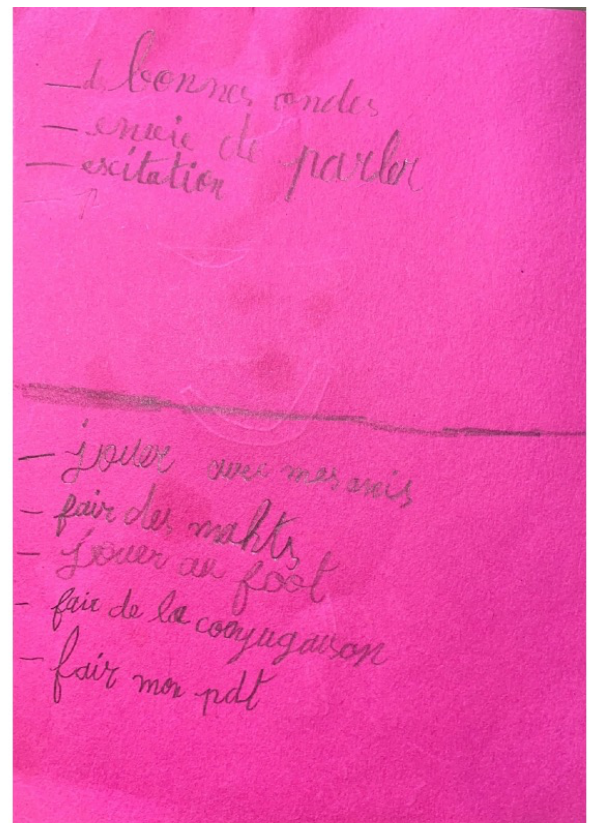 — de bonnes ondes
— envie de parler
— escitation
— jouer avec mes amis
— fair des mahts
— jouer au foot
— fair de la conjugaison
— fair mon pdt